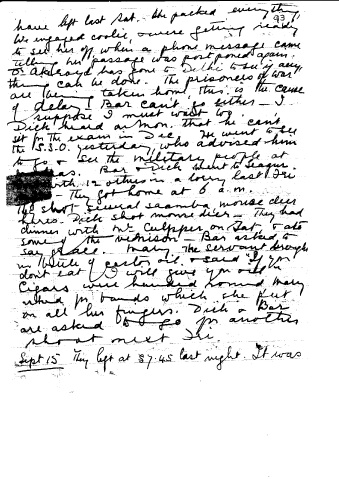 93
have left last Sat. We packed everything,
we engaged coolies, & were getting ready
to see her off when a phone message came
telling her passage was postponed again.
Dr Akroyd has gone to Delhi to see if any
thing can be done. The prisoners of war
are being taken home, this is the cause
of delay! Bar can't go either – I
suppose I must wait to
Dick heard on Mon. that he can't
sit for the exam in Dec. He went to see
the S.S.O. yesterday, who advised him
to go & see the military people at
Bar & Dick went to
with 12 others in a lorry last Fri
– They got home at 6 a.m.
shot several saamba, mouse deer
hares. Dick shot mouse deer – They had
dinner with Mr Culpper on Sat, & ate
some of the venison – Bar asked to
say grace. Mary. The servant brought
in bottle of castor oil, & said "if you
don't eat I will give you oil" The
Cigars were handed round Mary
asked for bands which she put
on all her fingers. Dick & Bar
are asked to go for another
shoot next Fri.
Sept 15 They left at 7.45 last night. It was